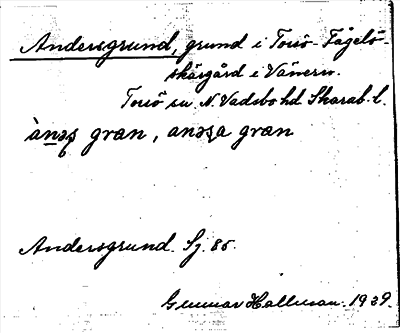 Andersgrund, grund i Torsö-Fågelö-
skärgård i Vänern.
Torsö sn N. Vadsbo hd Skarab. l.
gran, gran
Andersgrund. Sj. 85.
Gunnar Hallman. 1939.